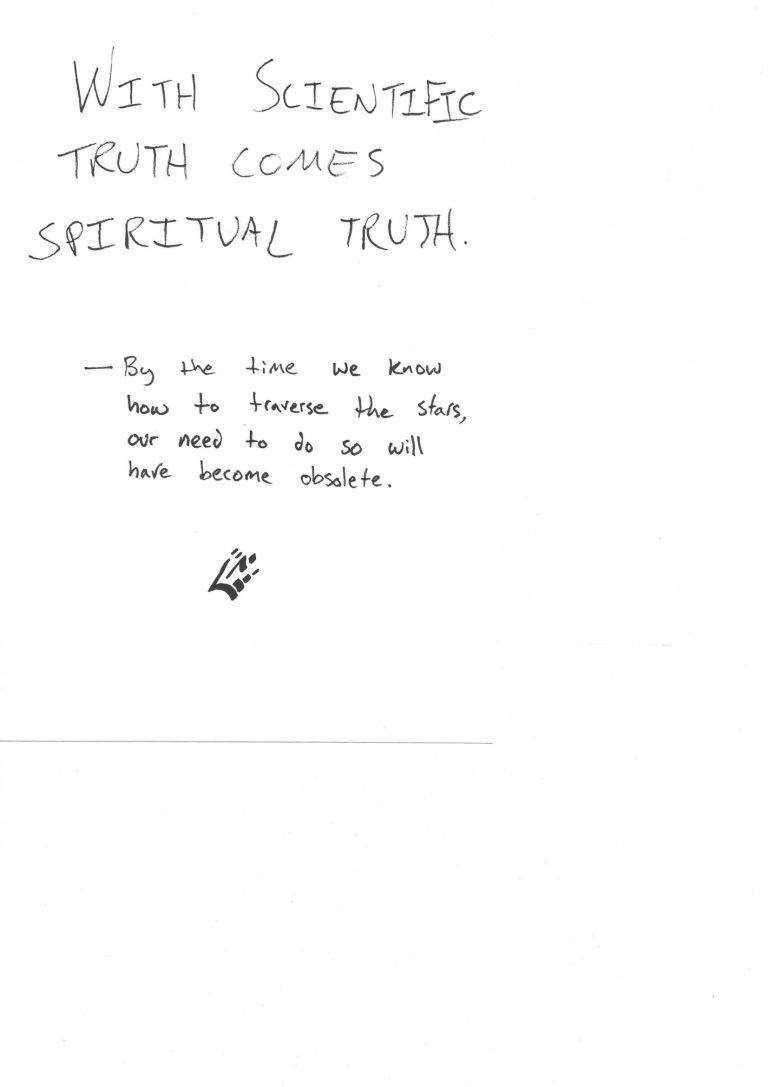 WITH SCIENTIFIC
TRUTH COMES
SPIRITUAL TRUTH.
— By the time we know
how to traverse the stars,
our need to do so will
have become obsolete.